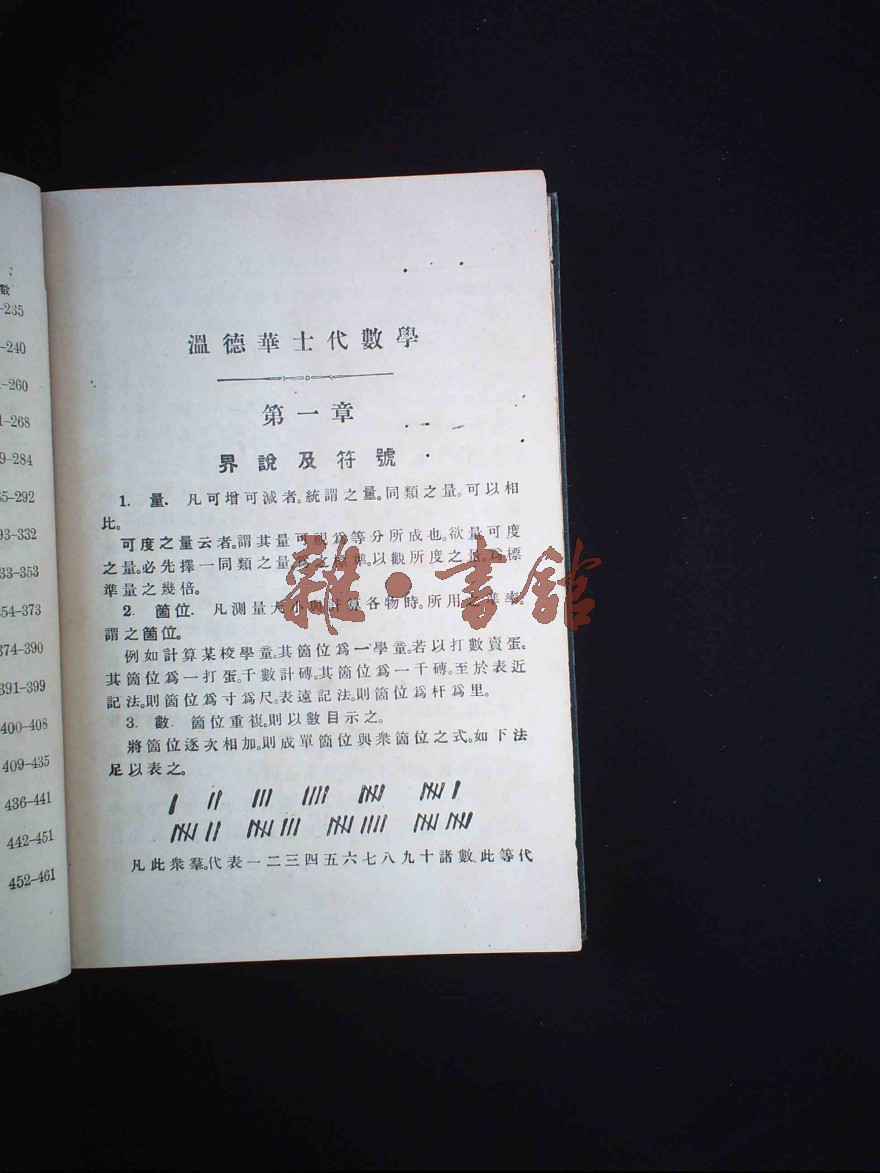 數
-235
-240
-260
-268
-284
-292
-332
33-353
354-373
374-390
391-399
400-408
409-435
436-441
442-451
452-461
溫德華士代數學
第一章
界說及符號
1. 量. 凡可增可減者。統謂之量。同類之量。可以相
比。
可度之量云者。謂其量可視爲等分所成也。欲量可度
之量。必先擇一同類之量爲之標準。以觀所度之量。爲標
準量之幾倍。
2. 箇位. 凡測量大小與計算各物時。所用之準率。
謂之箇位。
例如計算某校學童。其箇位爲一學童。若以打數賣蛋。
其箇位爲一打蛋。千數計磚。其箇位爲一千磚。至於表近
記法。則箇位爲寸爲尺。表遠記法。則箇位爲杆爲里。
3. 數. 箇位重複。則以數目示之。
將箇位逐次相加。則成單箇位與衆箇位之式。如下法
足以表之。
凡此衆羣。代表一二三四五六七八九十諸數。此等代
雜·書館